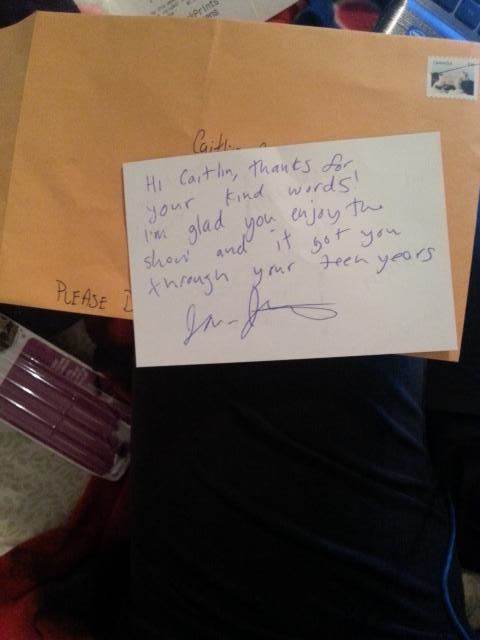 Prints
CANADA
Caitlin
Hi Caitlin, thanks for
your kind words!
I'm glad you enjoy the
show and it got you
through your teen years
PLEASE D